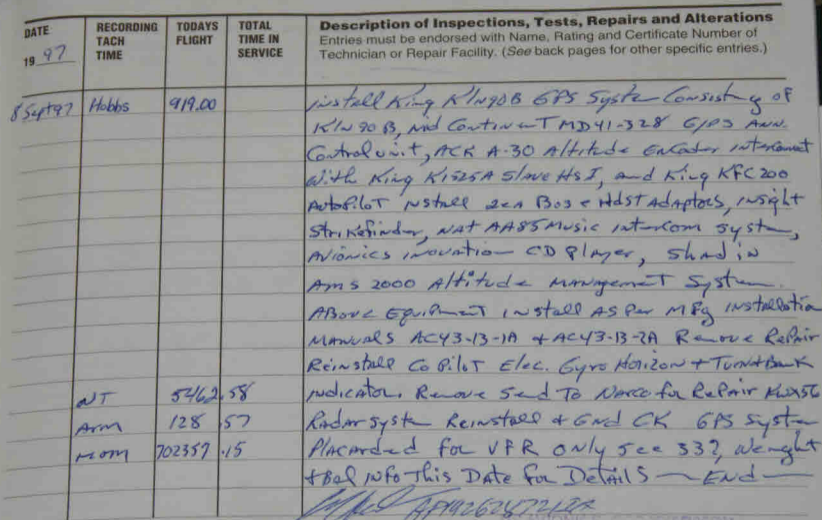 DATE
19 97
RECORDING TACH TIME
TODAYS FLIGHT
TOTAL TIME IN SERVICE
Description of Inspections, Tests, Repairs and Alterations
Entries must be endorsed with Name, Rating and Certificate Number of
Technician or Repair Facility. (See back pages for other specific entries.)
8 Sept 97 Hobbs 919.00 install King KLN90B GPS System Consisting of
KLN 90 B, Mid Continent MD41-328 GPS ANN.
Control unit, ACK A-30 Altitude Encoder interconnect
With King KI525A Slave HSI, and King KFC 200
AutoPilot Nstall 2ea Bose Hdst Adaptors, insight
Strikefinder, NAT AA85 Music intercom system,
Avionics inovation CD Player, Shadin
Ams 2000 Altitude Management System.
Above Equipment install As Per Mfg installation
Manuals AC43-13-1A + AC43-13-2A Remove Repair
Reinstall CoPilot Elec. Gyro Horizon + Turn+Bank
WT 5462.58 indicator. Remove Send To Narco for Repair KWX56
Arm 128.57 Radar syste Reinstall + Gnd CK GPS System
Mom 702357.15 Placarded for VFR only see 337, Weaught
+Bal info This Date for Details — END —